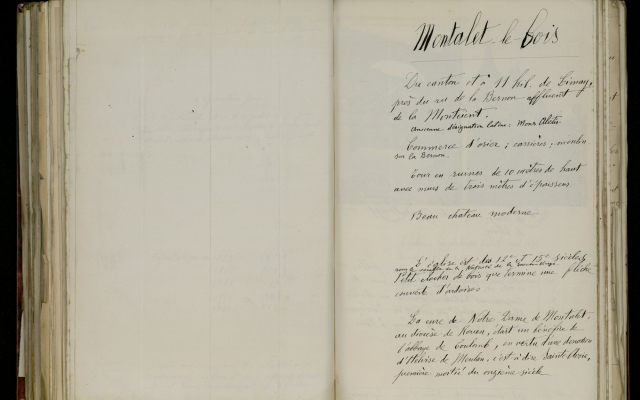 Montalet-le-bois
Du canton et à 11 kil. de Limay,
près du ru de la Bernon affluent
de la Montcient.
Ancienne désignation latine: Mons Aletu
Commerce d'osier; carrières; moulin
sur la Bernon.
Tour en ruines de 10 mètres de haut
avec murs de trois mètres d'épaisseur
Beau chateau moderne
L'église est des 12e et 15e siècles
sous la de la Nativité de la
Petit clocher de bois que termine une flèche
couverte d'ardoises
La cure de Notre Dame de Montalet
au diocèse de Rouen, était un bénéfice de
l'abbaye de Coulomb, en vertu d'une donation
d'Héloïse de Meulan, c'est à dire Sainte Avoie,
première moitié du onzième siècle